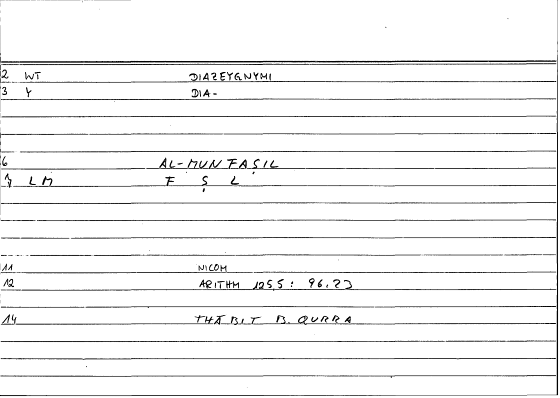 2 WT DIAZEYGNYMI
3 Y DIA-
6 AL-MUNFAṢIL
LM F Ṣ L
11 NICOM
12 ARITHM 125,5: 96.23
14 THĀBIT B. QURRA